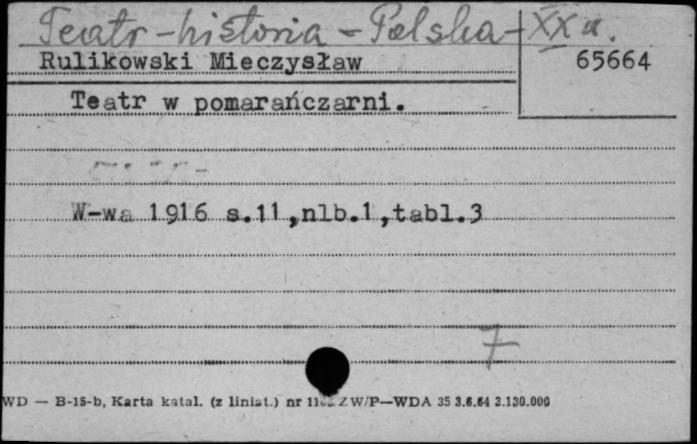 Teatr - historia - Polska - XX w.
Rulikowski Mieczysław
65664
Teatr w pomarańczarni.
W-wa 1916 s.11,nlb.1,tabl.3
7
WD — B-15-b, Karta katal. (z liniat.) nr ZW/P—WDA 35 3.6.64 3.130.000